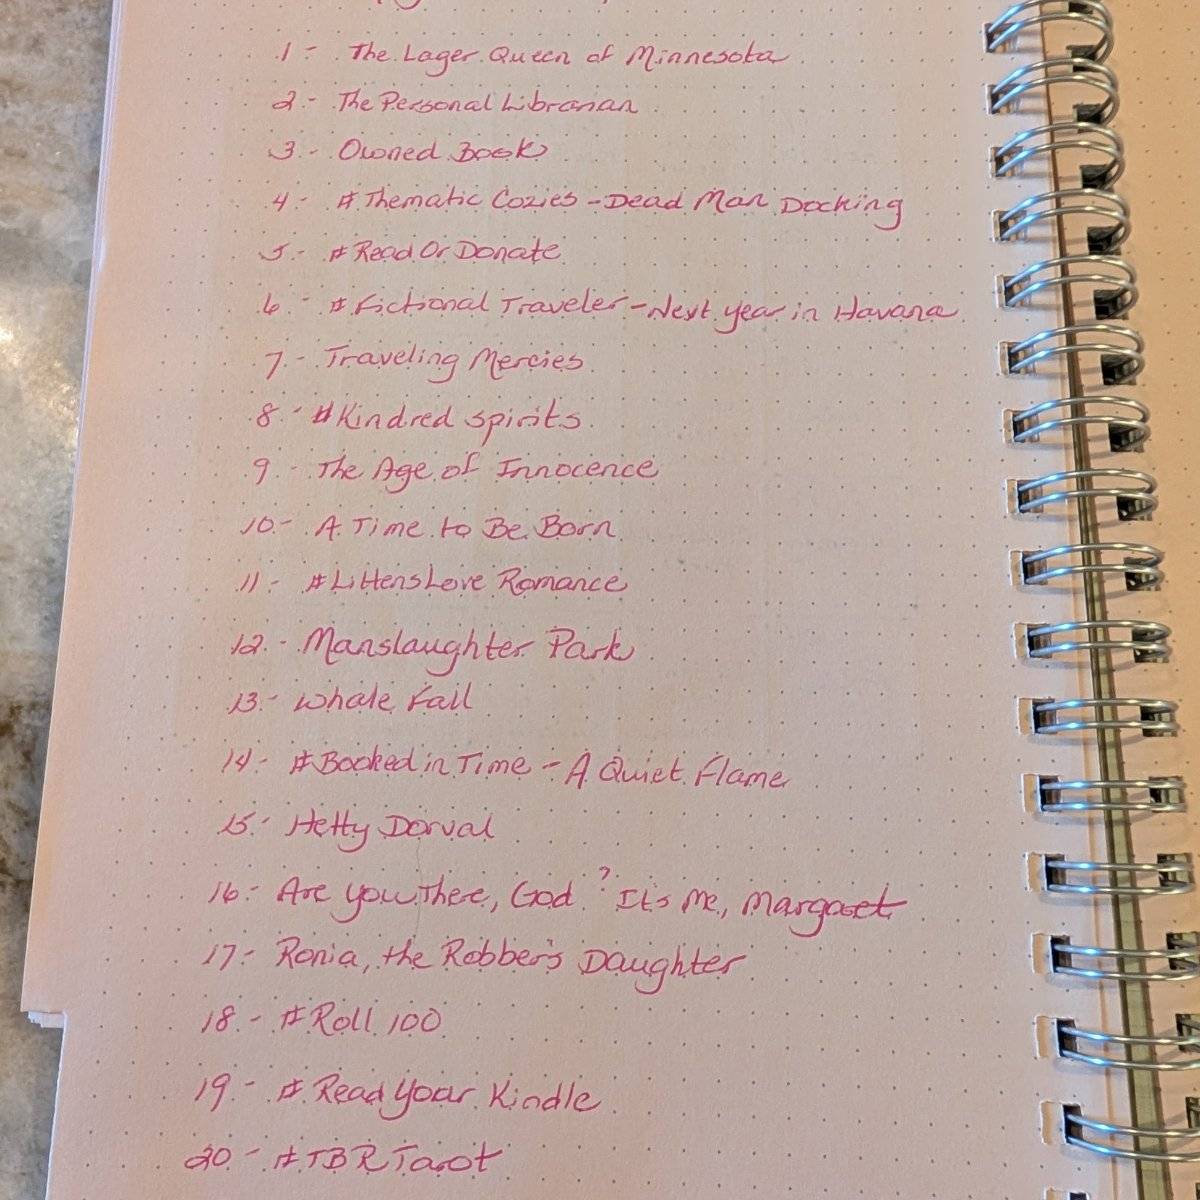 1 - The Lager Queen of Minnesota
2 - The Personal Librarian
3 - Owned Book
4 - #Thematic Cozies - Dead Man Docking
5 - #Read Or Donate
6 - #Fictional Traveler - Next year in Havana
7 - Traveling Mercies
8 - #Kindred Spirits
9 - The Age of Innocence
10 - A Time to Be Born
11 - #LittensLove Romance
12 - Manslaughter Park
13 - Whale Fall
14 - #Booked in Time - A Quiet Flame
15 - Hetty Dorval
16 - Are you There, God? It's Me, Margaret
17 - Ronia, the Robber's Daughter
18 - #Roll 100
19 - #Read Your Kindle
20 - #TBR Tarot